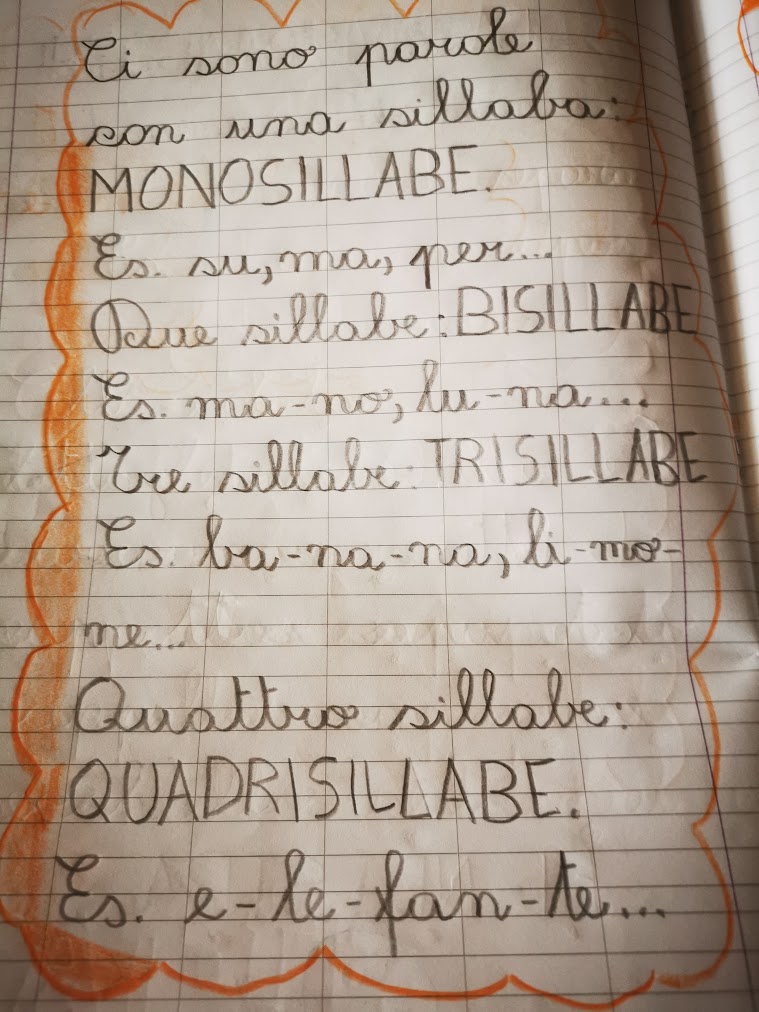 Ci sono parole
con una sillaba:
MONOSILLABE.
Es. su, ma, per...
Due sillabe: BISILLABE
Es. ma-no, lu-na...
Tre sillabe: TRISILLABE
Es. ba-na-na, li-mo-
ne...
Quattro sillabe:
QUADRISILLABE.
Es. e-le-fan-te...